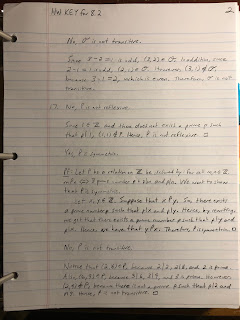 HW KEY for 8.2
2.
No, σ is not transitive.
Since 3-2=1, is odd, (3,2) ∈ σ. In addition, since
2-1=1 is odd, (2,1) ∈ σ. However, (3,1) ∉ σ,
because 3-1=2, which is even. Therefore, σ is not
transitive.
No, P is not reflexive.
Since 1 ∈ Z and there does not exist a prime p such
that p|1, (1,1) ∉ P. Hence, P is not reflexive.
Yes, P is symmetric.
Pf: Let P be a relation on Z be defined by: for all m,n ∈ Z
m P n ⇔ ∃ prime number p that p|m and p|n. We want to show
that P is symmetric.
Let x, y ∈ Z. Suppose that x P y. So, there exists
a prime number p such that p|x and p|y. Hence, by rewriting,
we get that there exists a prime number p such that p|y and
p|x. Hence, we have that y P x. Therefore, P is symmetric.
No, P is not transitive.
Notice that (2,6) ∈ P, because 2|2, 2|6, and 2 is prime.
Also, (6,9) ∈ P, because 3|6, 3|9, and 3 is prime. However,
(2,9) ∉ P, because there is not a prime p such that p|2 and
p|9. Hence, P is not transitive.